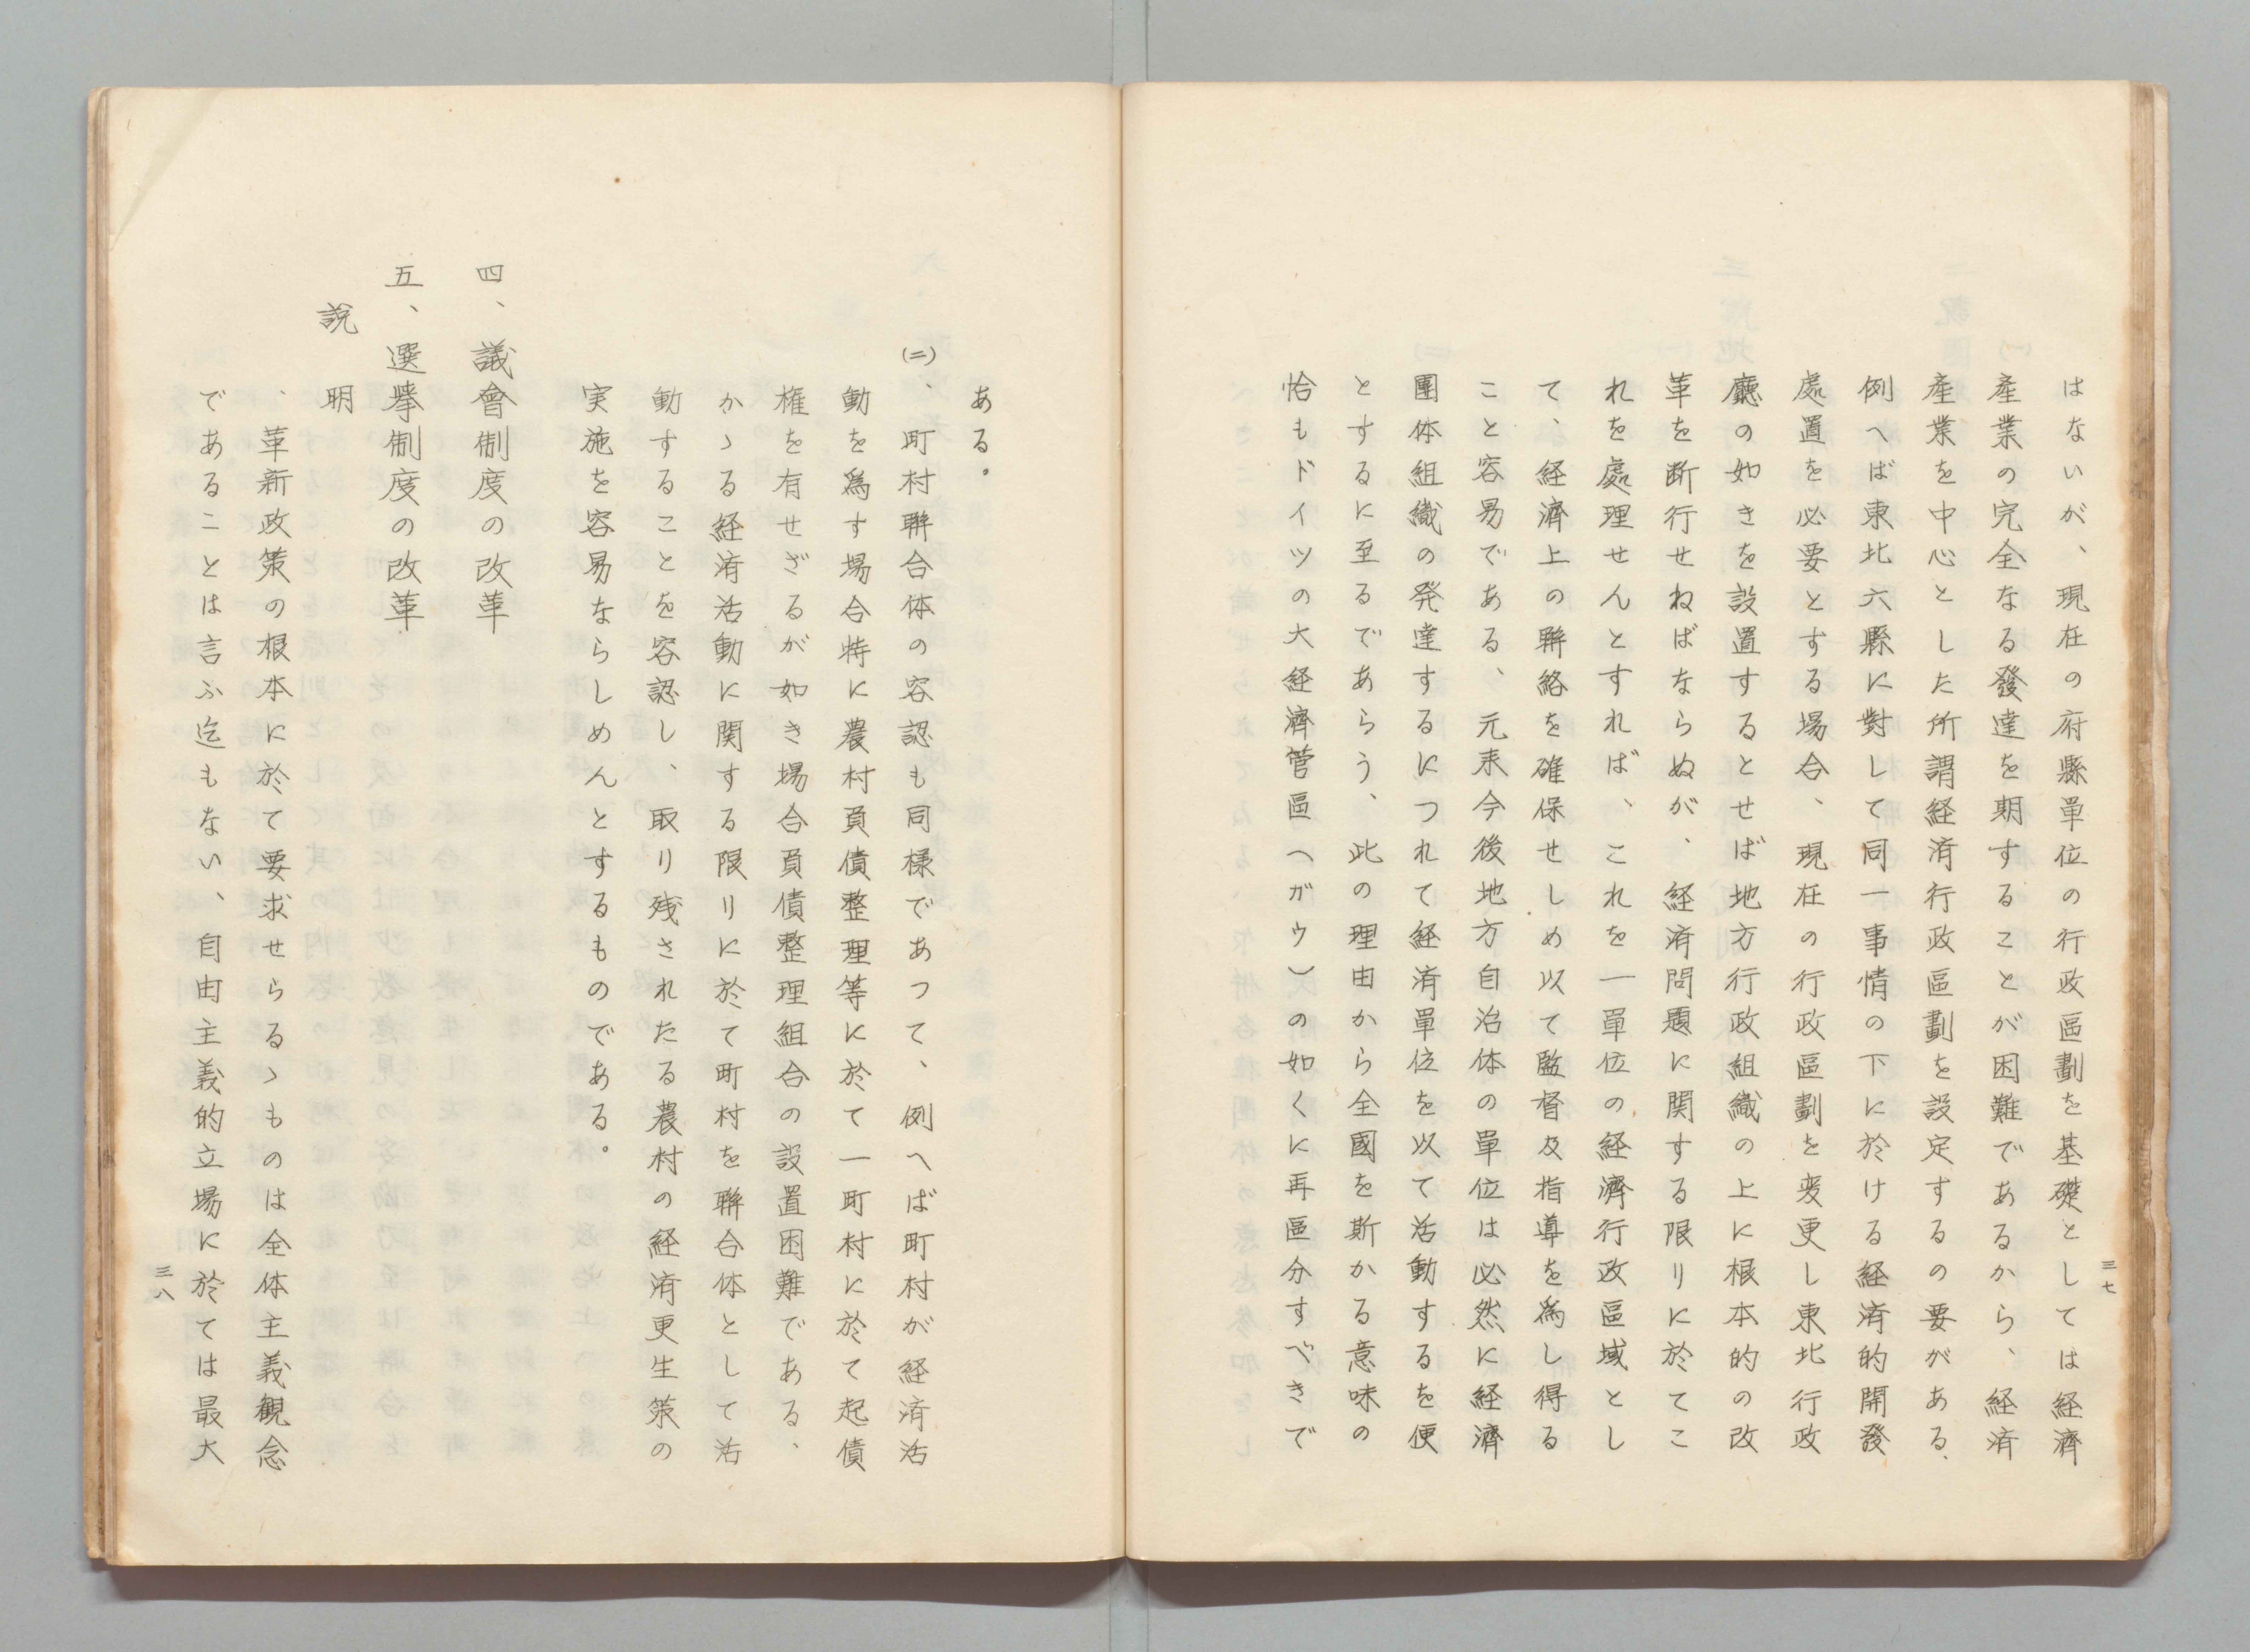 はないが、現在の府縣單位の行政區劃を基礎としては経濟
産業の完全なる發達を期することが困難であるから、経済
産業を中心とした所謂経済行政區劃を設定するの要がある、
例へば東北六縣に對して同一事情の下に於ける経済的開發
處置を必要とする場合、現在の行政區劃を変更し東北行政
廳の如きを設置するとせば地方行政組織の上に根本的の改
革を断行せねばならぬが、経済問題に関する限りに於てこ
れを處理せんとすれば、これを一單位の経濟行政區域とし
て、経濟上の聯絡を確保せしめ以て監督及指導を為し得る
こと容易である、元来今後地方自治体の單位は必然に経濟
團体組織の発達するにつれて経済單位を以て活動するを便
とするに至るであらう、此の理由から全國を斯かる意味の
恰もドイツの大経濟管區（ガウ）の如くに再區分すべきで
三七
ある。
(二)、町村聯合体の容認も同様であつて、例へば町村が経済活
動を為す場合特に農村負債整理等に於て一町村に於て起債
権を有せざるが如き場合負債整理組合の設置困難である、
かゝる経済活動に関する限りに於て町村を聯合体として活
動することを容認し、取り残されたる農村の経済更生策の
実施を容易ならしめんとするものである。
四、議會制度の改革
五、選擧制度の改革
説明
、革新政策の根本に於て要求せらるゝものは全体主義観念
であることは言ふ迄もない、自由主義的立場に於ては最大
三八